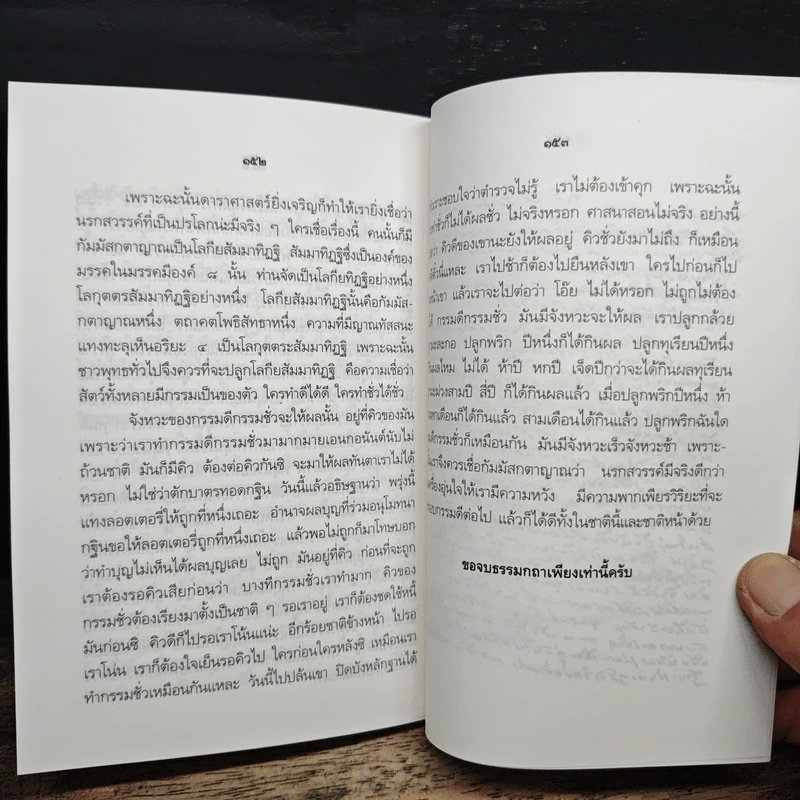 ๑๕๒
เพราะฉะนั้นดาราศาสตร์ยิ่งเจริญก็ทำให้เรายิ่งเชื่อว่า
นรกสวรรค์ที่เป็นปรโลกน่ะมีจริง ๆ ใครเชื่อเรื่องนี้ คนนั้นก็มี
กัมมัสกตาญาณเป็นโลกียสัมมาทิฏฐิ สัมมาทิฏฐิซึ่งเป็นองค์ของ
มรรคในมรรคมีองค์ ๘ นั้น ท่านจัดเป็นโลกียทิฏฐิอย่างหนึ่ง
โลกุตตรสัมมาทิฏฐิอย่างหนึ่ง โลกียสัมมาทิฏฐินั้นคือกัมมัส-
กตาญาณหนึ่ง ตถาคตโพธิสัทธาหนึ่ง ความที่มีญาณทัสสนะ
แทงทะลุเห็นอริยะ ๔ เป็นโลกุตตระสัมมาทิฏฐิ เพราะฉะนั้น
ชาวพุทธทั่วไปจึงควรที่จะปลูกโลกียสัมมาทิฏฐิ คือความเชื่อว่า
สัตว์ทั้งหลายมีกรรมเป็นของตัว ใครทำดีได้ดี ใครทำชั่วได้ชั่ว
จังหวะของกรรมดีกรรมชั่วจะให้ผลนั้น อยู่ที่คิวของมัน
เพราะว่าเราทำกรรมดีกรรมชั่วมามากมายเอนกอนันต์นับไม่
ถ้วนชาติ มันก็มีคิว ต้องต่อคิวกันซิ จะมาให้ผลทันตาเราไม่ได้
หรอก ไม่ใช่ว่าตักบาตรทอดกฐิน วันนี้แล้วอธิษฐานว่า พรุ่งนี้
แทงลอตเตอรี่ให้ถูกที่หนึ่งเถอะ อำนาจผลบุญที่ร่วมอนุโมทนา
กฐินขอให้ลอตเตอรี่ถูกที่หนึ่งเถอะ แล้วพอไม่ถูกก็มาโทษบอก
ว่าทำบุญไม่เห็นได้ผลบุญเลย ไม่ถูก มันอยู่ที่คิว ก่อนที่จะถูก
เราต้องรอคิวเสียก่อนว่า บางทีกรรมชั่วเราทำมาก คิวของ
กรรมชั่วต้องเรียงมาตั้งเป็นชาติ ๆ รอเราอยู่ เราก็ต้องชดใช้หนี้
มันก่อนซิ คิวดีก็ไปรอเราโน้นแน่ะ อีกร้อยชาติข้างหน้า ไปรอ
เราโน่น เราก็ต้องใจเย็นรอคิวไป ใครก่อนใครหลังซิ เหมือนเรา
ทำกรรมชั่วเหมือนกันแหละ วันนี้ไปปล้นเขา ปิดบังหลักฐานได้
๑๕๓
เราะชอบใจว่าตำรวจไม่รู้ เราไม่ต้องเข้าคุก เพราะฉะนั้น
ชั่วก็ไม่ได้ผลชั่ว ไม่จริงหรอก ศาสนาสอนไม่จริง อย่างนี้
ว่า คิวดีของเขานะยังให้ผลอยู่ คิวชั่วยังมาไม่ถึง ก็เหมือน
คิวนี้แหละ เราไปช้าก็ต้องไปยืนหลังเขา ใครไปก่อนก็ไป
หน้าเขา แล้วเราจะไปต่อว่า โอ๊ย ไม่ได้หรอก ไม่ถูกไม่ต้อง
ได้ กรรมดีกรรมชั่ว มันมีจังหวะจะให้ผล เราปลูกกล้วย
มะละกอ ปลูกพริก ปีหนึ่งก็ได้กินผล ปลูกทุเรียนปีหนึ่ง
กินผลไหม ไม่ได้ ห้าปี หกปี เจ็ดปีกว่าจะได้กินผลทุเรียน
มะม่วงสามปี สี่ปี ก็ได้กินผลแล้ว เมื่อปลูกพริกปีหนึ่ง ห้า
เดือนก็ได้กินแล้ว สามเดือนก็ได้กินแล้ว ปลูกพริกฉันใด
กรรมชั่วก็เหมือนกัน มันมีจังหวะเร็วจังหวะช้า เพราะ-
เราจึงควรเชื่อกัมมัสกตาญาณว่า นรกสวรรค์มีจริงดีกว่า
เครื่องอุ่นใจให้เรามีความหวัง มีความพากเพียรวิริยะที่จะ
กรรมดีต่อไป แล้วก็ได้ดีทั้งในชาตินี้และชาติหน้าด้วย
ขอจบธรรมกถาเพียงเท่านี้ครับ